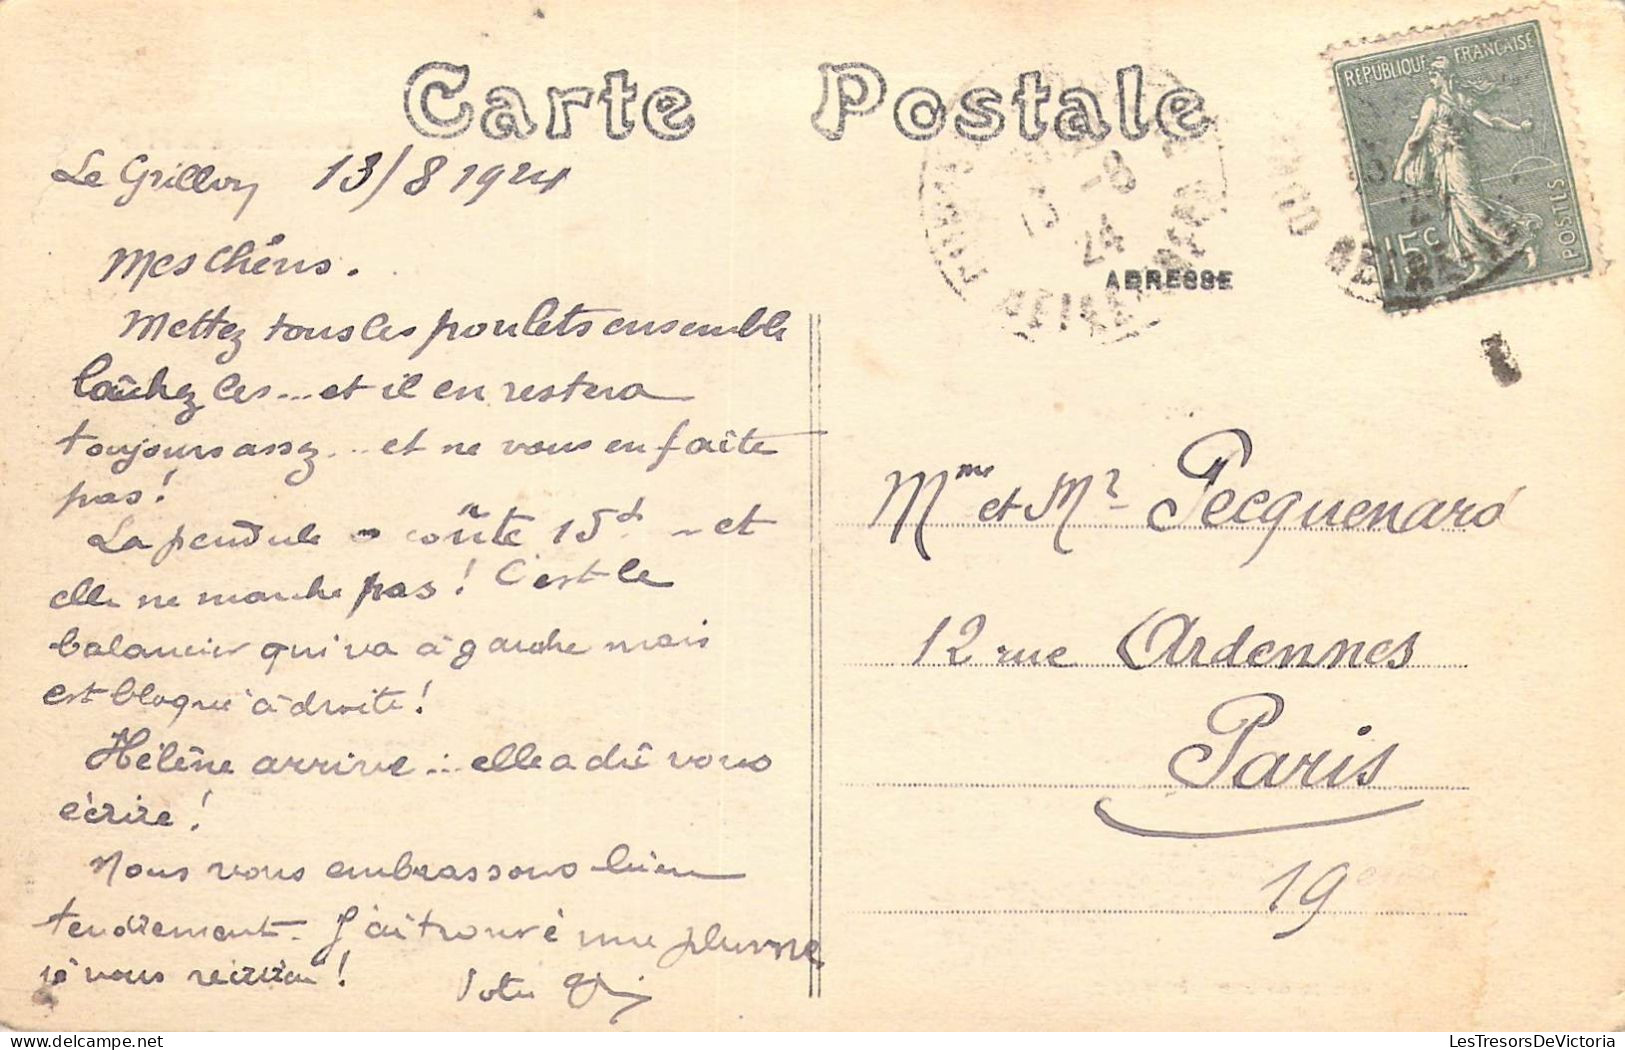 Carte Postale
RÉPUBLIQUE FRANÇAISE
15c
POSTES
Le Grillon 13/8 1924
24
ADRESSE
Mes Chéris.
Mettez tous les poulets ensemble
lâchez les... et il en restera
toujours assez... et ne vous en faite
pas!
La pendule coûte 15f - et
elle ne marche pas! C'est le
balancier qui va à gauche mais
est bloqué à droite!
Hélène arrive... elle a dû vous
écrire!
Nous vous embrassons bien
tendrement. J'ai trouvé une plume
je vous récrirai!
Votre
Mme et Mr Pecquenard
12 rue Ardennes
Paris
19eme
LesTresorsDeVictoria